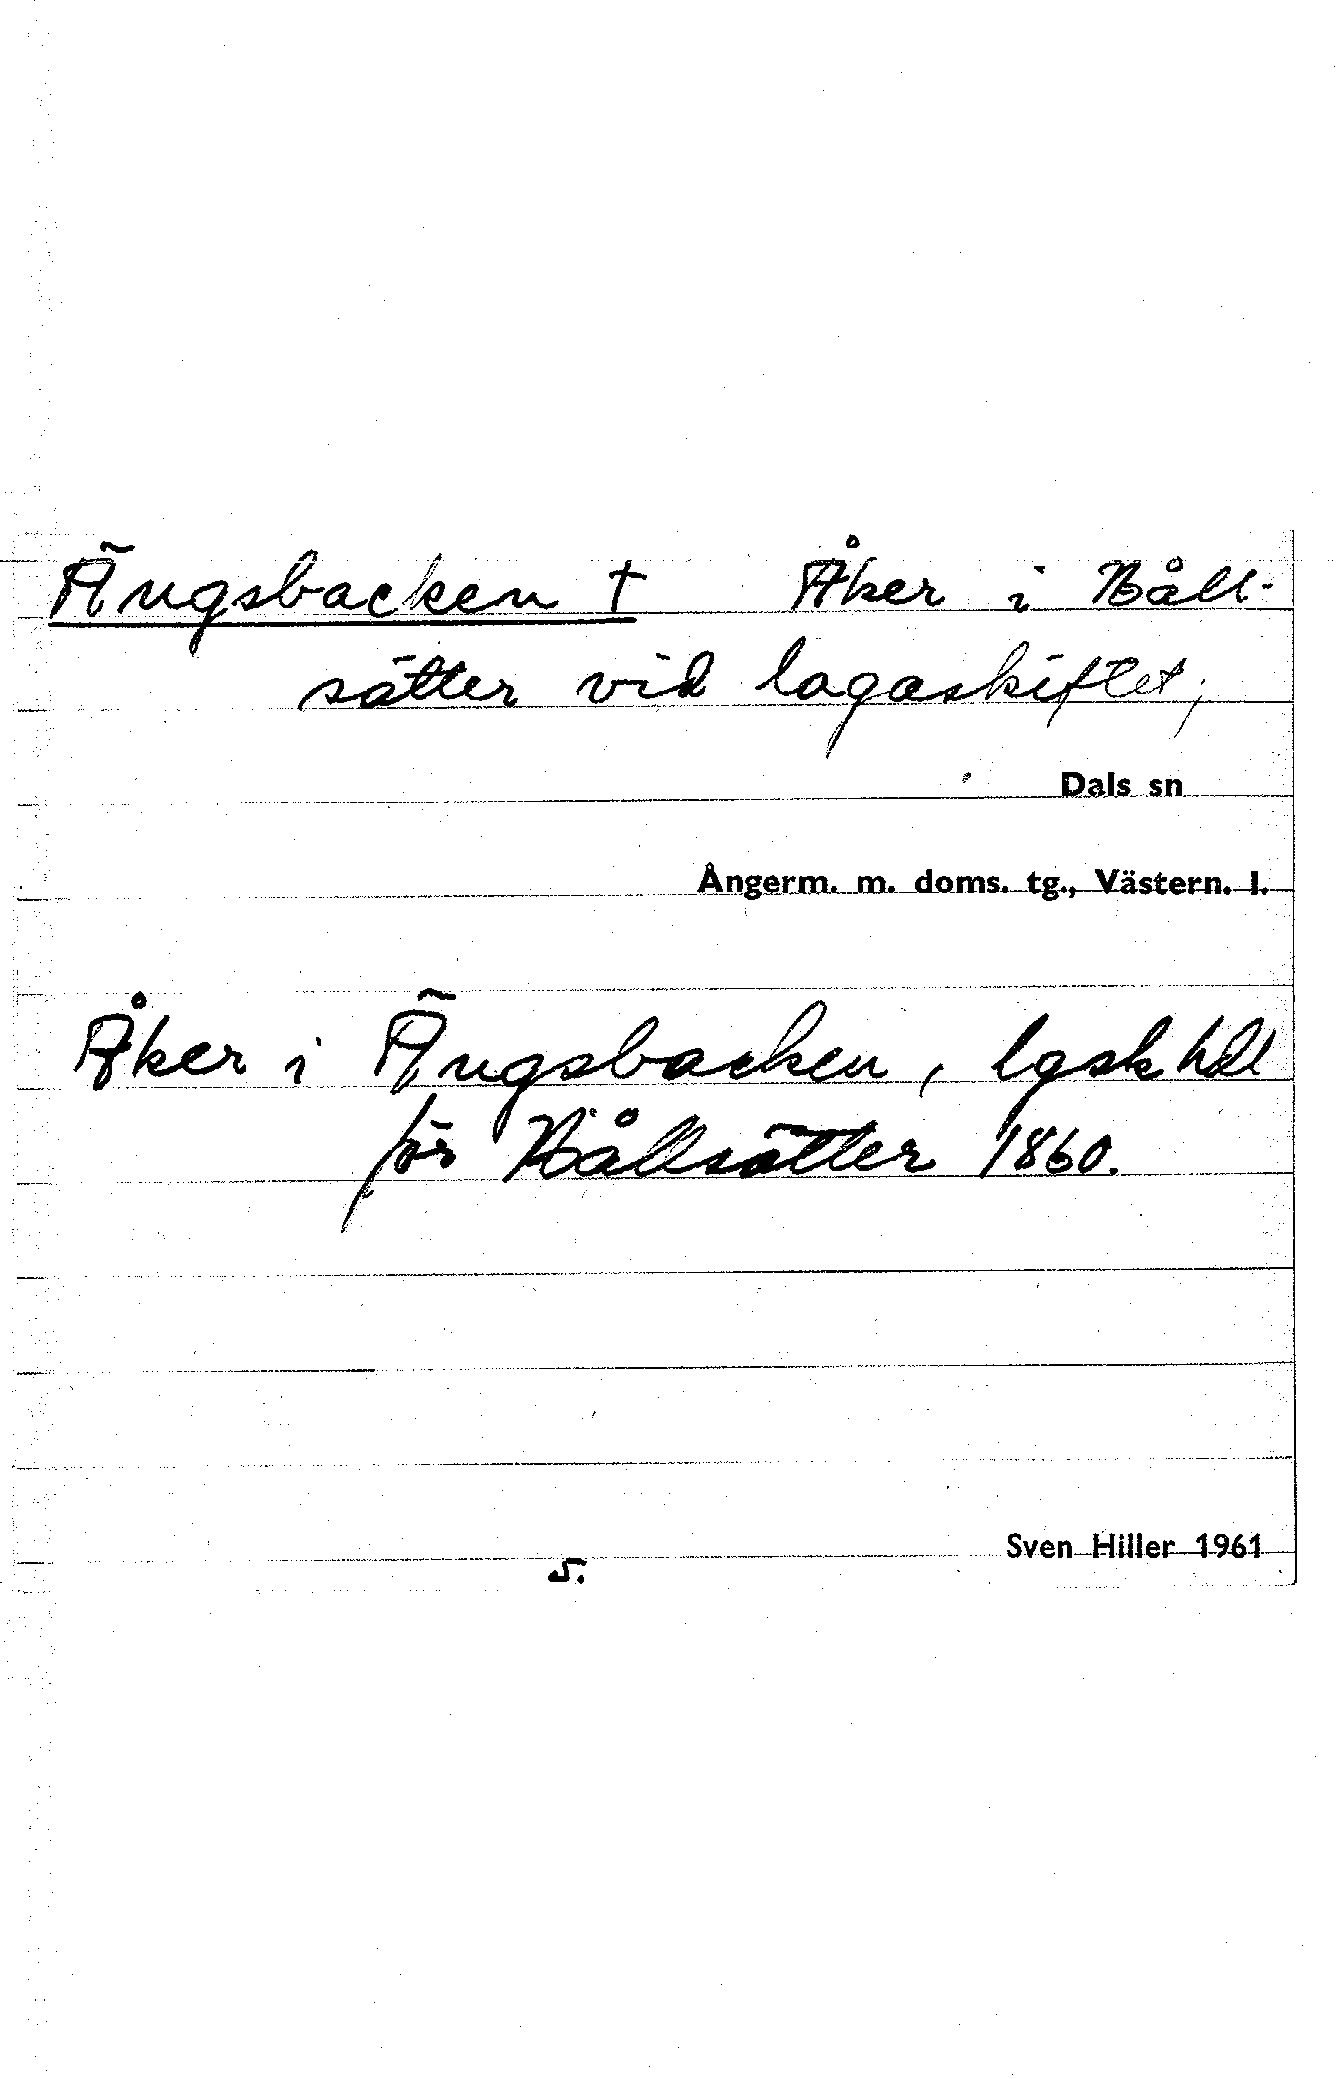 Ängsbacken † Åker i Båll-
sätter vid lagaskiftet,
Dals sn
Ångerm. m. doms. tg., Västern. l.
Åker i Ängsbacken, lgsk hdl
för Bållsätter 1860.
Sven Hiller 1961
5.